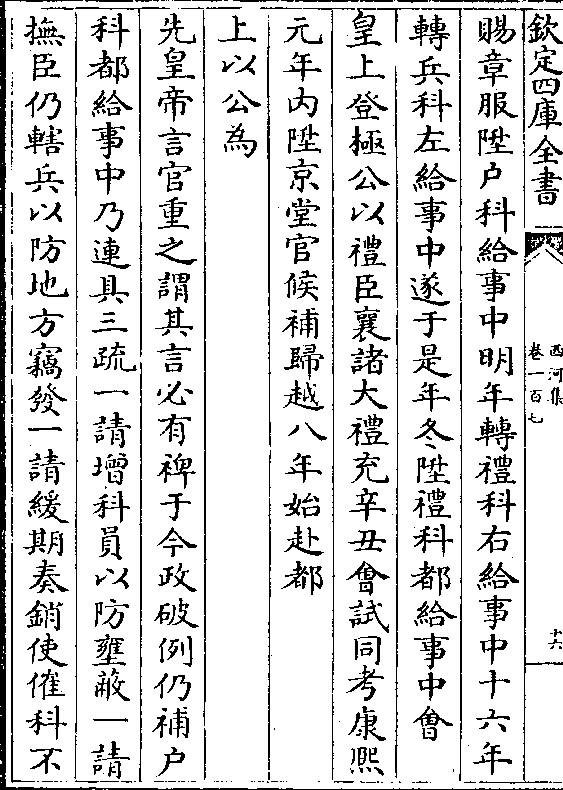 欽定四庫全書
西河集
卷一百七
十六
賜章服陞户科給事中明年轉禮科右給事中十六年
轉兵科左給事中遂于是年冬陞禮科都給事中會
皇上登極公以禮臣襄諸大禮充辛丑會試同考康熙
元年内陞京堂官候補歸越八年始赴都
上以公為
先皇帝言官重之謂其言必有裨于今政破例仍補户
科都給事中乃連具三疏一請增科員以防壅蔽一請
撫臣仍轄兵以防地方竊發一請緩期奏銷使催科不